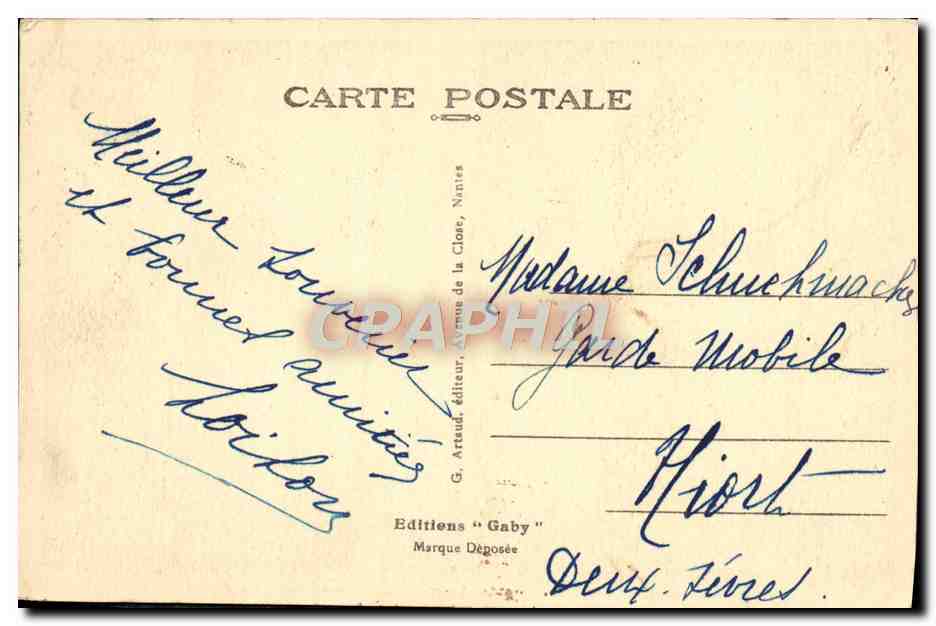 CARTE POSTALE
Meilleur souvenir
et bonnes amitiés
G. Artaud, éditeur, Avenue de la Close, Nantes
Madame Schuchmacher
Garde Mobile
Niort
Deux-Sèvres.
Editions "Gaby"
Marque Déposée
CPAPHIL